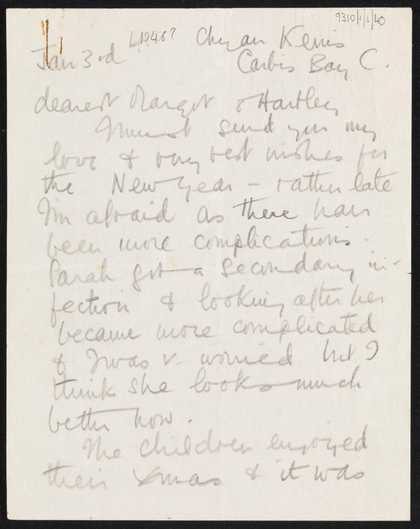 9310/1/1/40
Jan 3rd [1946? Chyan Kerris
Carbis Bay C.
dearest Margot & Hartley
I must send you my
love & very best wishes for
the New Year – rather late
I'm afraid as there have
been more complications.
Sarah got a secondary in-
fection & looking after her
became more complicated
& I was v. worried but I
think she looks much
better now.
The children enjoyed
their Xmas & it was